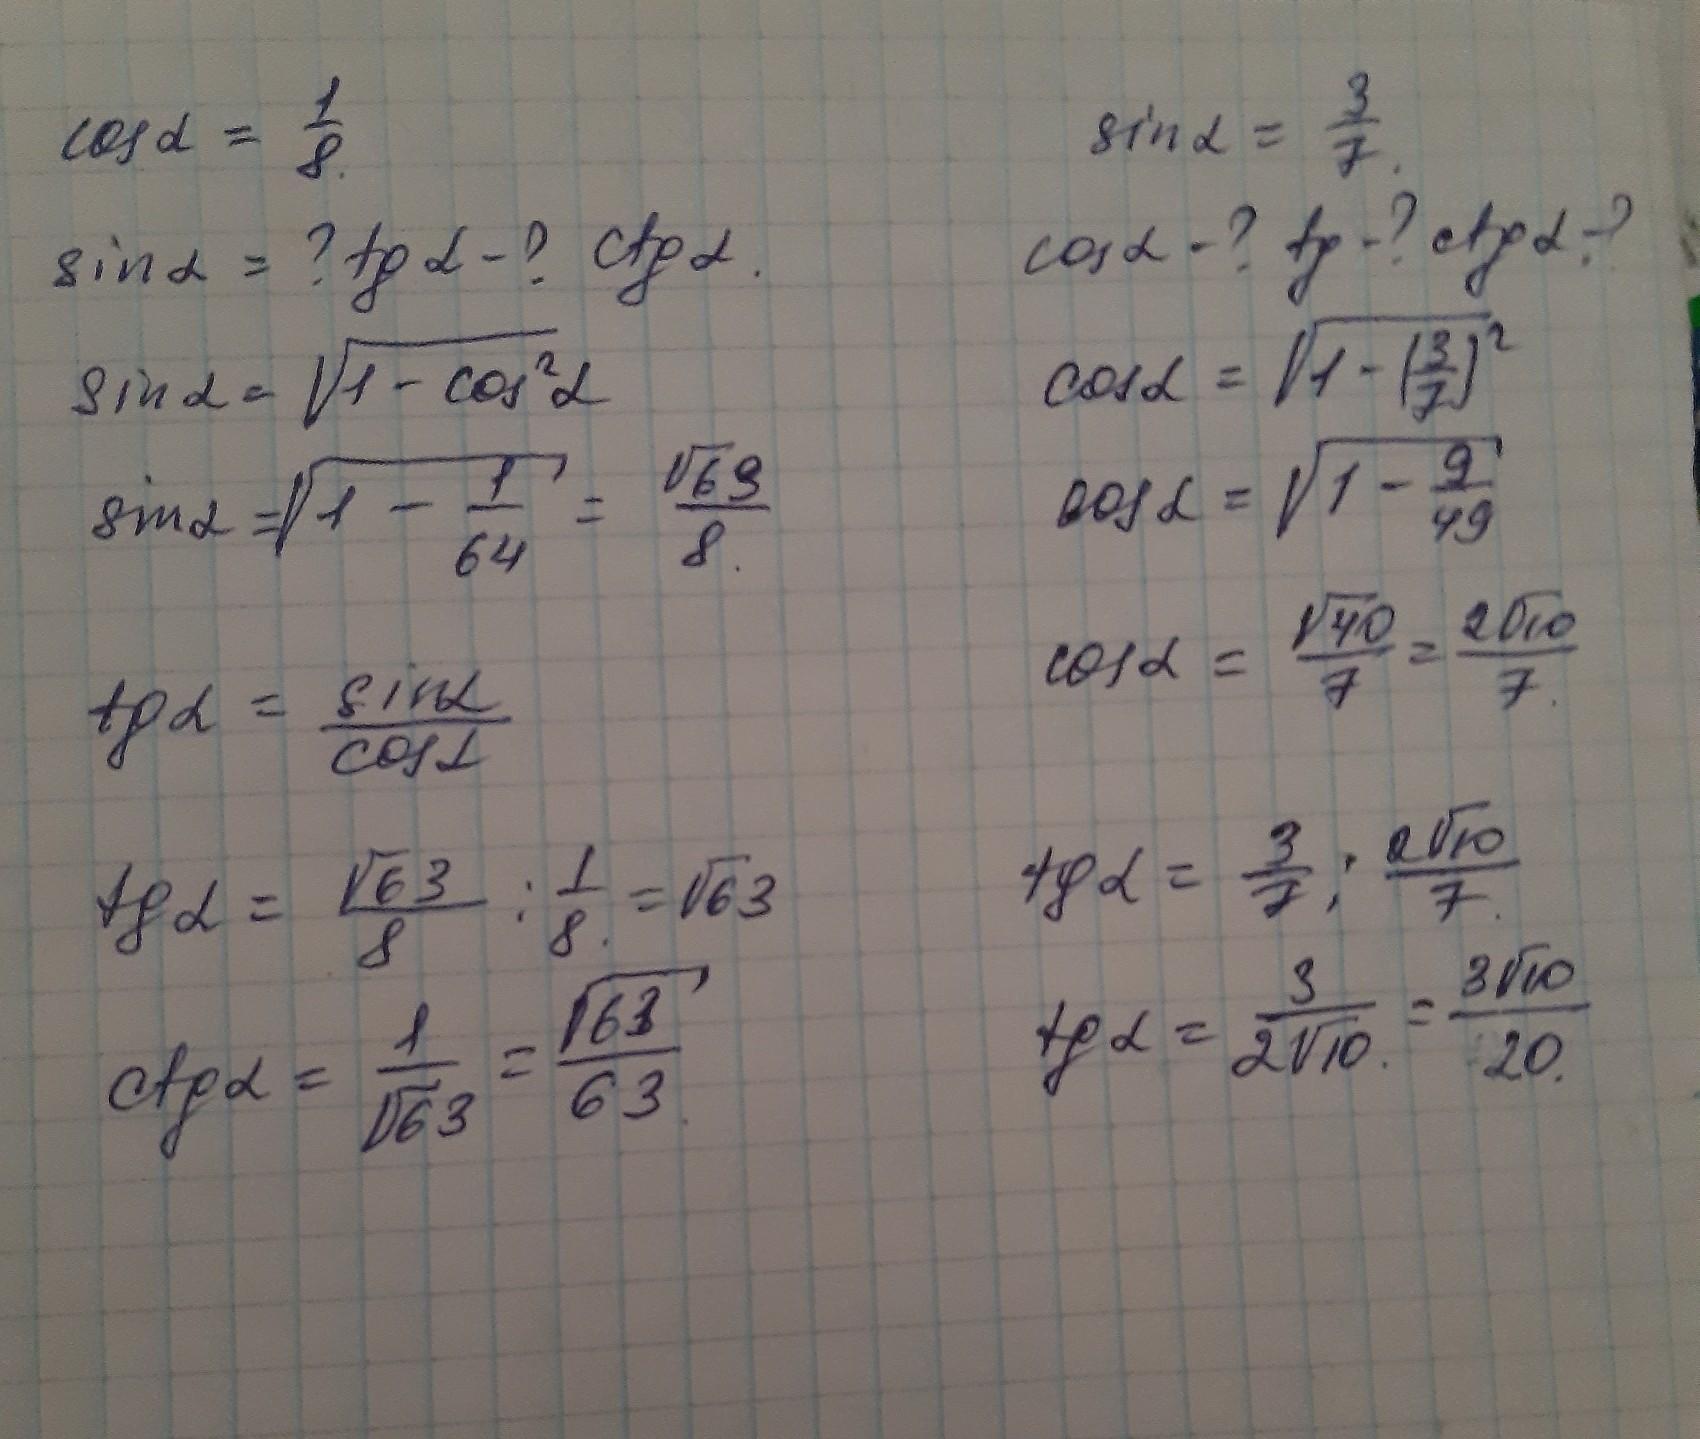 cosα = 1/8.
sinα = ? tgα - ? ctgα.
sinα = √1 - cos²α
sinα = √1 - 1/64 = √63/8.
tgα = sinα/cosα
tgα = √63/8 : 1/8. = √63
ctgα = 1/√63 = √63/63.
sinα = 3/7.
cosα - ? tg - ? ctgα - ?
cosα = √1 - (3/7)²
cosα = √1 - 9/49
cosα = √40/7 = 2√10/7.
tgα = 3/7 : 2√10/7.
tgα = 3/2√10. = 3√10/20.